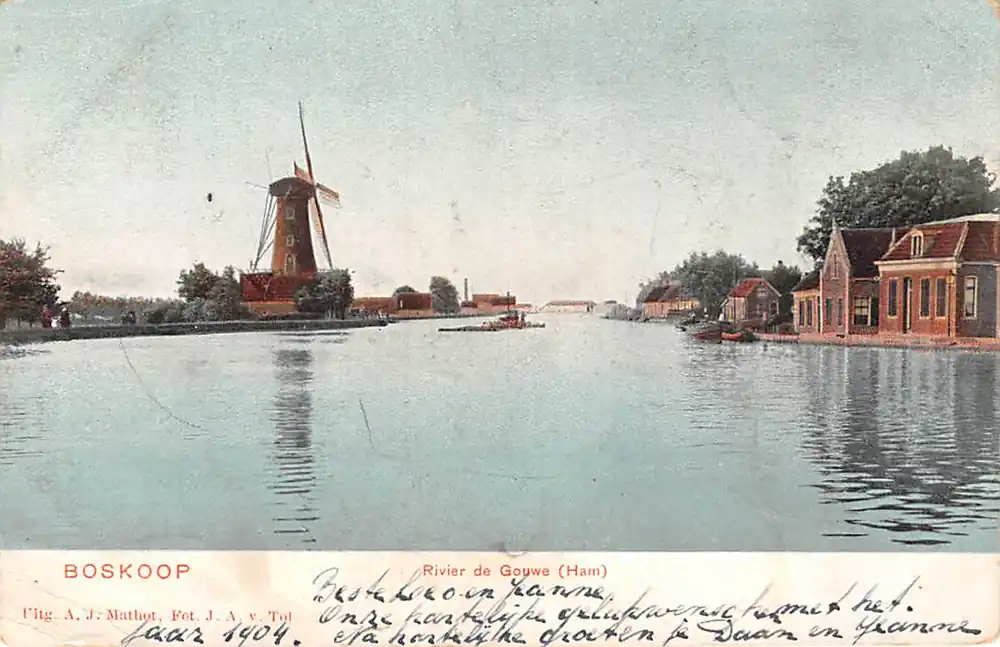 BOSKOOP
Rivier de Gouwe (Ham)
Uitg. A. J. Mathot, Fot. J. A. v. Tol
Beste Leo en Jeanne
Onze hartelijke gelukwensch met het.
jaar 1904. Na hartelijke groeten je Daan en Jeanne